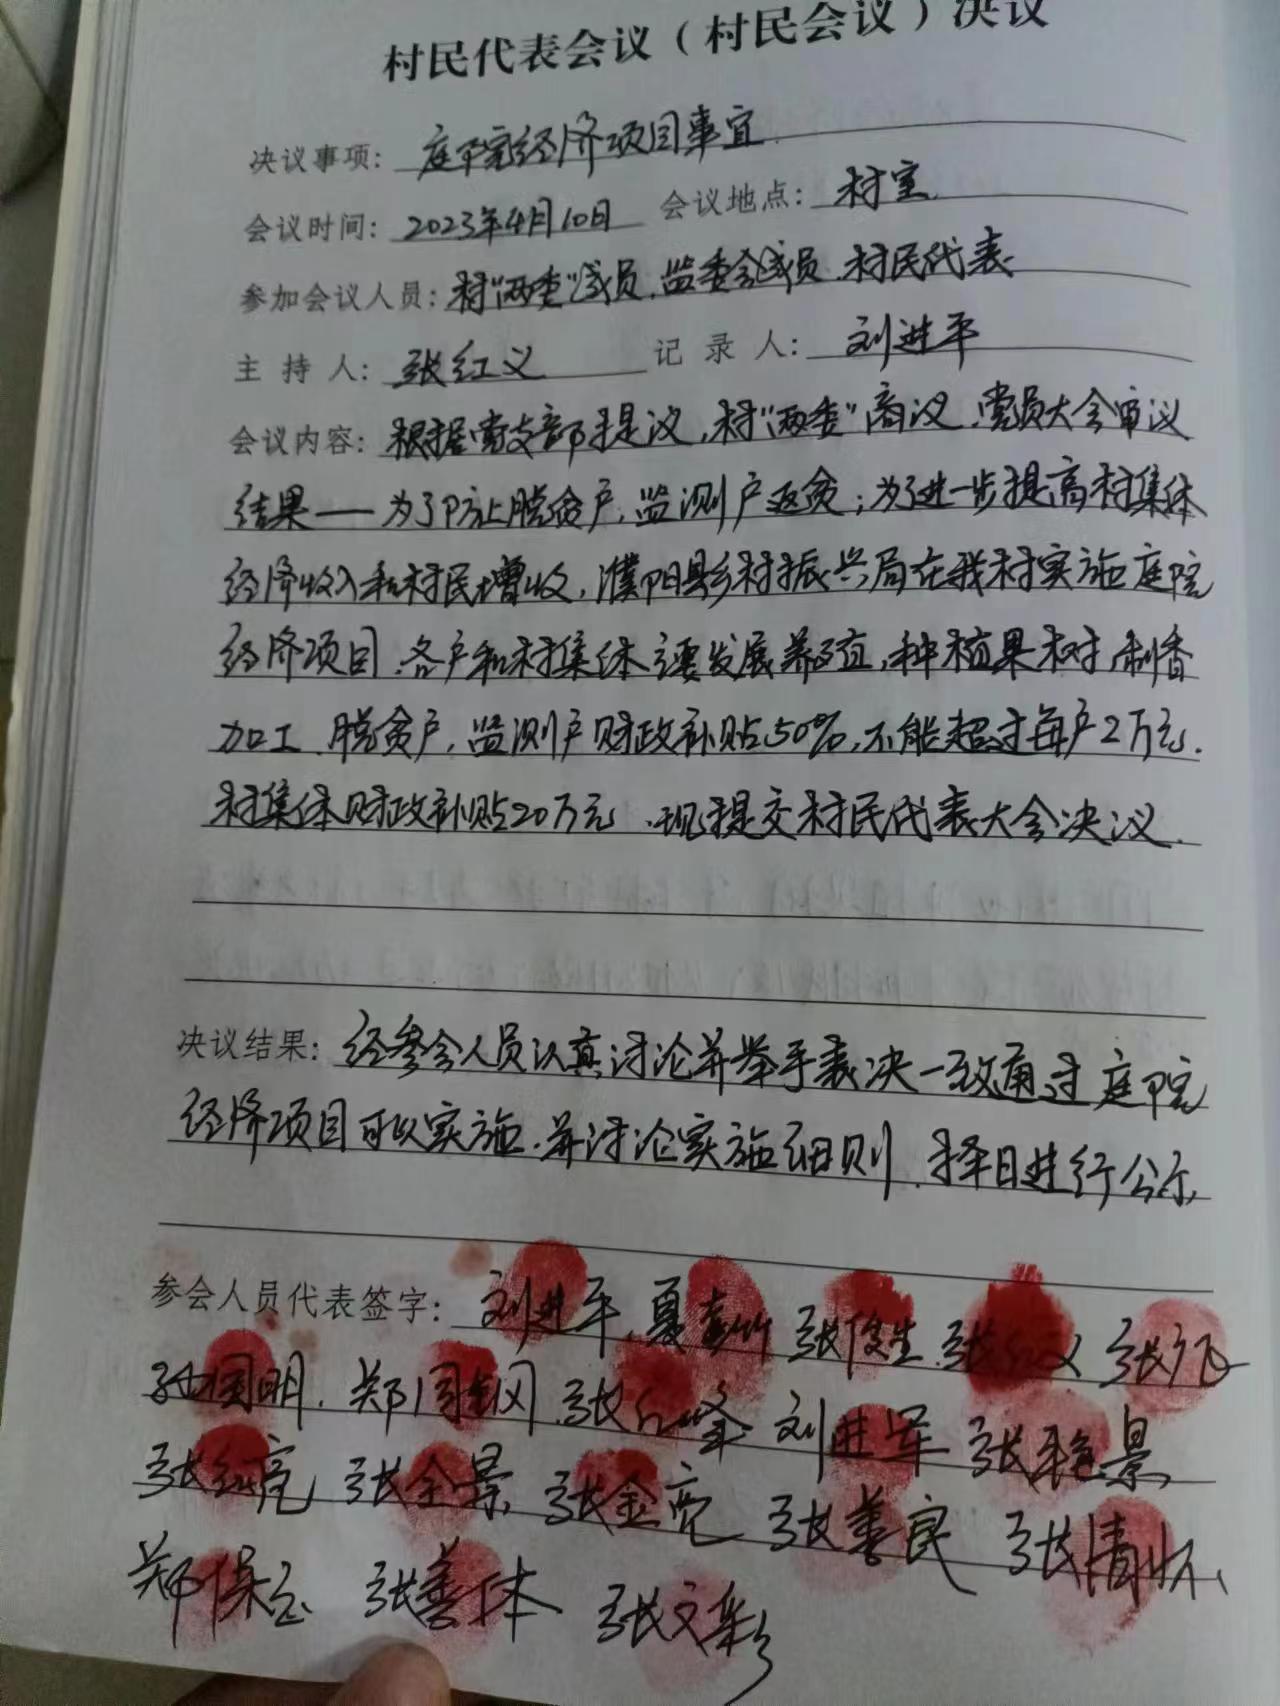 村民代表会议（村民会议）决议
决议事项：庭院经济项目事宜.
会议时间：2023年4月10日 会议地点：村室.
参加会议人员：村"两委"成员.监委会成员.村民代表
主持人：张红义 记录人：刘进平
会议内容：根据党支部提议,村"两委"商议.党员大会审议
结果——为了防止脱贫户.监测户返贫；为了进一步提高村集体
经济收入和村民增收,濮阳县乡村振兴局在我村实施庭院
经济项目.各户和村集体主要发展养殖,种植果树.制香
加工.脱贫户.监测户财政补贴50%,不能超过每户2万元.
村集体财政补贴20万元.现提交村民代表大会决议.
决议结果：经参会人员认真讨论并举手表决一致通过庭院
经济项目可以实施.并讨论实施细则.择日进行公示.
参会人员代表签字：刘进平.夏 张俊生.张红义 张飞
孙国明.郑国钢.张红峰 刘进军 张艳景
张红亮 张全景 张金亮 张善良 张清怀
郑保 张善体 张文彩